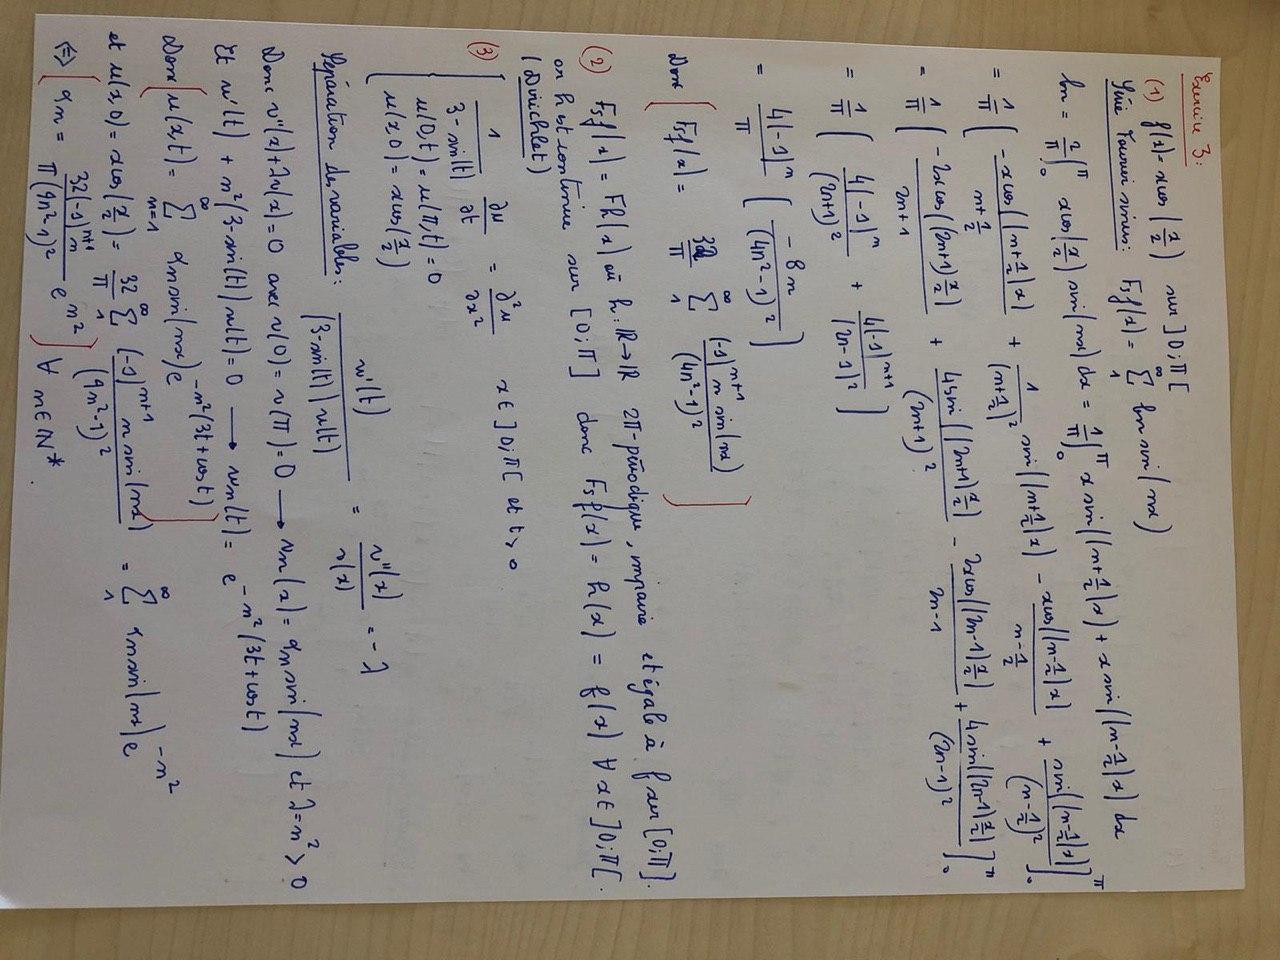 Exercice 3:
(1) f(x) = x cos(x/2) sur ]0;π[
Série Fourier sinus: F_s f(x) = Σ_1^∞ bn sin(nx)
bn = 2/π ∫_0^π x cos(x/2) sin(nx) dx = 1/π ∫_0^π x sin((n+1/2)x) + x sin((n-1/2)x) dx
= 1/π [ -x cos((n+1/2)x)/(n+1/2) + 1/(n+1/2)² sin((n+1/2)x) - x cos((n-1/2)x)/(n-1/2) + sin((n-1/2)x)/(n-1/2)² ]_0^π
= 1/π [ -2x cos((2n+1)x/2)/(2n+1) + 4 sin((2n+1)x/2)/(2n+1)² - 2x cos((2n-1)x/2)/(2n-1) + 4 sin((2n-1)x/2)/(2n-1)² ]_0^π
= 1/π [ 4(-1)^n/(2n+1)² + 4(-1)^(n+1)/(2n-1)² ]
= 4(-1)^n/π [ -8n/(4n²-1)² ]
Donc [ F_s f(x) = 32/π Σ_1^∞ (-1)^(n+1) n sin(nx)/(4n²-1)² ]
(2) F_s f(x) = Fh(x) où h: ℝ→ℝ 2π-périodique, impaire et égale à f sur [0;π].
or h est continue sur [0;π] donc F_s f(x) = h(x) = f(x) ∀ x∈ ]0;π[.
(Dirichlet)
(3) { 1/(3-sin(t)) ∂u/∂t = ∂²u/∂x² x∈ ]0;π[ et t>0
u(0,t) = u(π,t) = 0
u(x,0) = x cos(x/2)
Séparation des variables: w'(t)/((3-sin(t))w(t)) = v''(x)/v(x) = -λ
Donc v''(x)+λv(x)=0 avec v(0)=v(π)=0 → vn(x) = αn sin(nx) et λ=n²>0
Et w'(t) + n²(3-sin(t))w(t)=0 → wn(t) = e^(-n²(3t+cos t))
Donc [ u(x,t) = Σ_{n=1}^∞ αn sin(nx) e^(-n²(3t+cos t)) ]
et u(x,0) = x cos(x/2) = 32/π Σ_1^∞ (-1)^(n+1) n sin(nx)/(4n²-1)² = Σ_1^∞ αn sin(nx) e^(-n²)
⇔ [ αn = 32(-1)^(n+1) n/(π(4n²-1)²) e^(n²) ] ∀ n∈ℕ*.